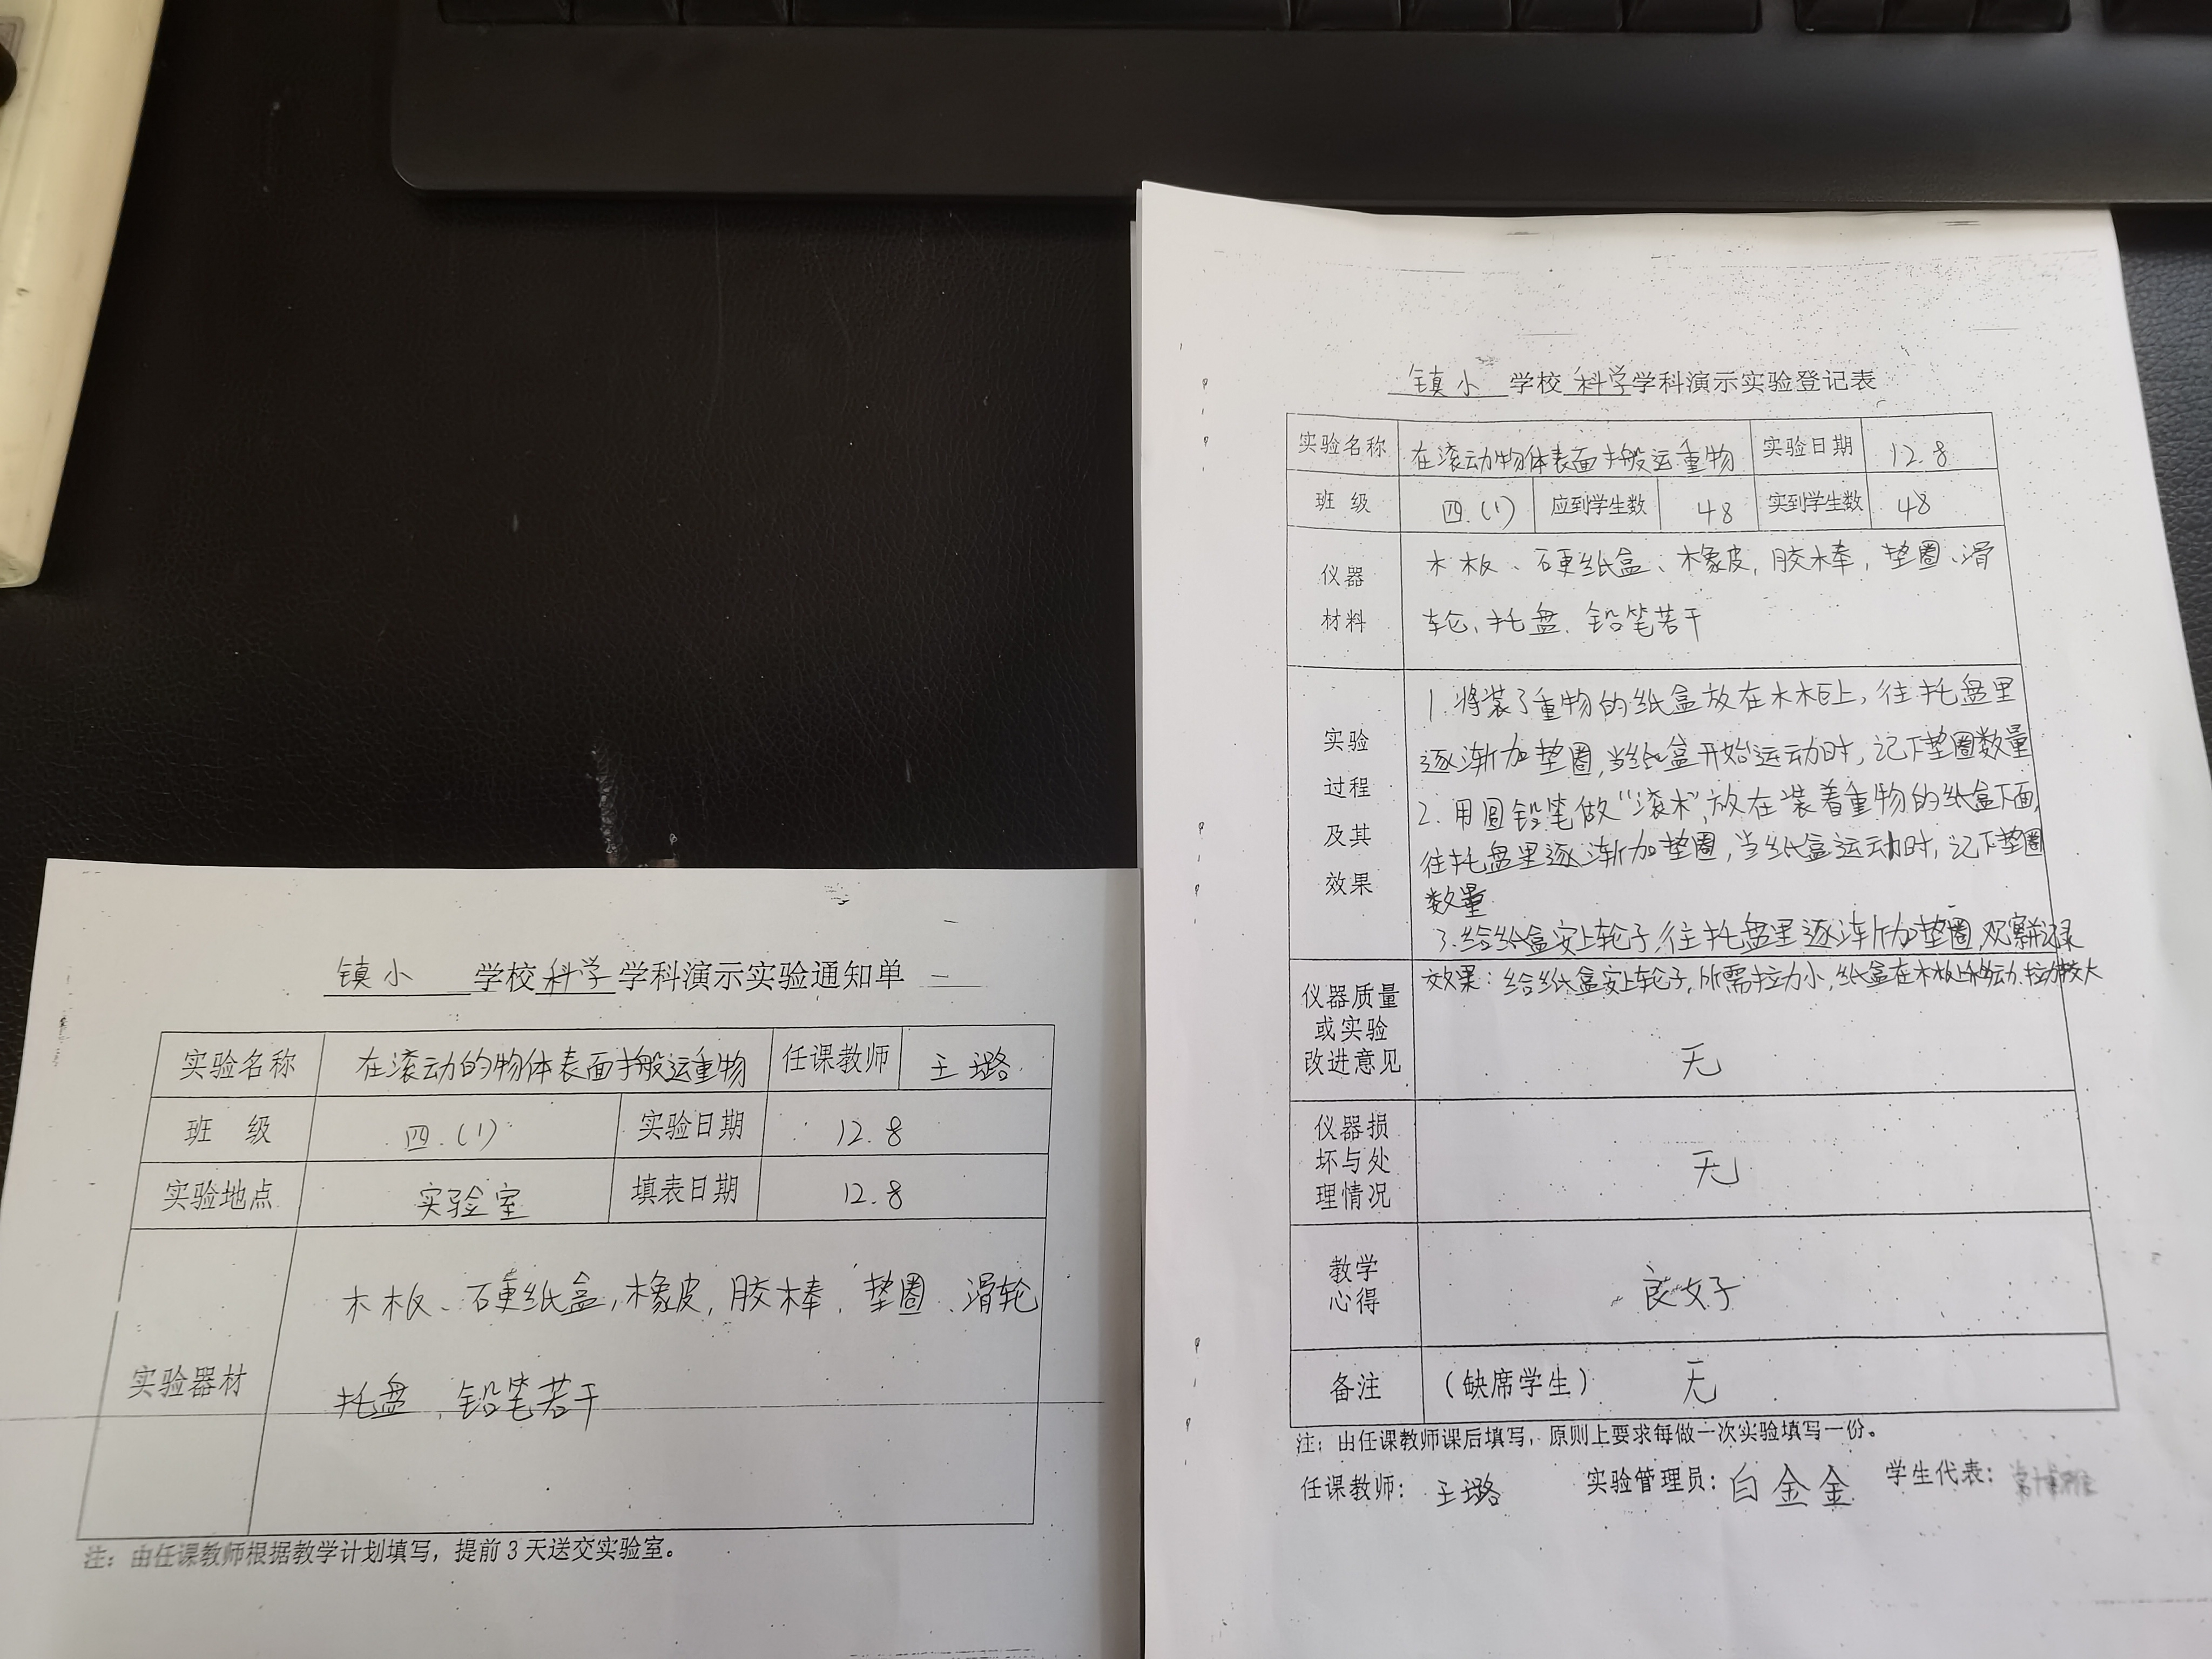 镇小 学校 科学 学科演示实验通知单
实验名称 在滚动的物体表面搬运重物 任课教师 王璐
班 级 四.(1) 实验日期 12.8
实验地点 实验室 填表日期 12.8
实验器材
木板、硬纸盒,橡皮,胶棒,垫圈、滑轮
托盘、铅笔若干
注：由任课教师根据教学计划填写，提前3天送交实验室。
镇小 学校 科学 学科演示实验登记表
实验名称 在滚动物体表面搬运重物 实验日期 12.8
班 级 四.(1) 应到学生数 48 实到学生数 48
仪器
材料
木板、硬纸盒、橡皮,胶棒,垫圈、滑
轮、托盘、铅笔若干
实验
过程
及其
效果
1.将装了重物的纸盒放在木板上,往托盘里
逐渐加垫圈,当纸盒开始运动时,记下垫圈数量
2.用圆铅笔做“滚木”,放在装着重物的纸盒下面,
往托盘里逐渐加垫圈,当纸盒运动时,记下垫圈
数量
3.给纸盒安上轮子,往托盘里逐渐加垫圈,观察并记录
效果：给纸盒安上轮子,所需拉力小,纸盒在木板上运动,拉力较大
仪器质量
或实验
改进意见
无
仪器损
坏与处
理情况
无
教学
心得
良好
备注 （缺席学生） 无
注：由任课教师课后填写，原则上要求每做一次实验填写一份。
任课教师： 王璐 实验管理员：白金金 学生代表：